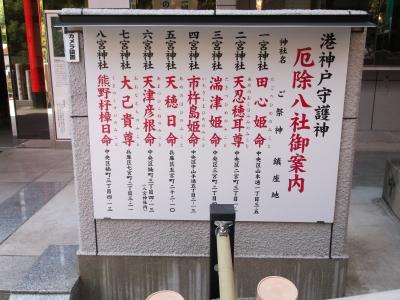 港神戸守護神
厄除八社御案内
神社名
ご祭神
鎮座地
一宮神社 田心姫命 中央区山本通一丁目三-五
二宮神社 天忍穂耳尊 中央区二宮町三丁目
三宮神社 湍津姫命 中央区三宮町二丁目
四宮神社 市杵島姫命 中央区中山手通五丁目
五宮神社 天穂日命 兵庫区五宮町二十二-一〇
六宮神社 天津彦根命 中央区楠町三丁目四-一三
(八宮神社内)
七宮神社 大己貴尊 兵庫区七宮町二丁目三-二一
八宮神社 熊野杼樟日命 中央区楠町三丁目四-一三
カメラ設置